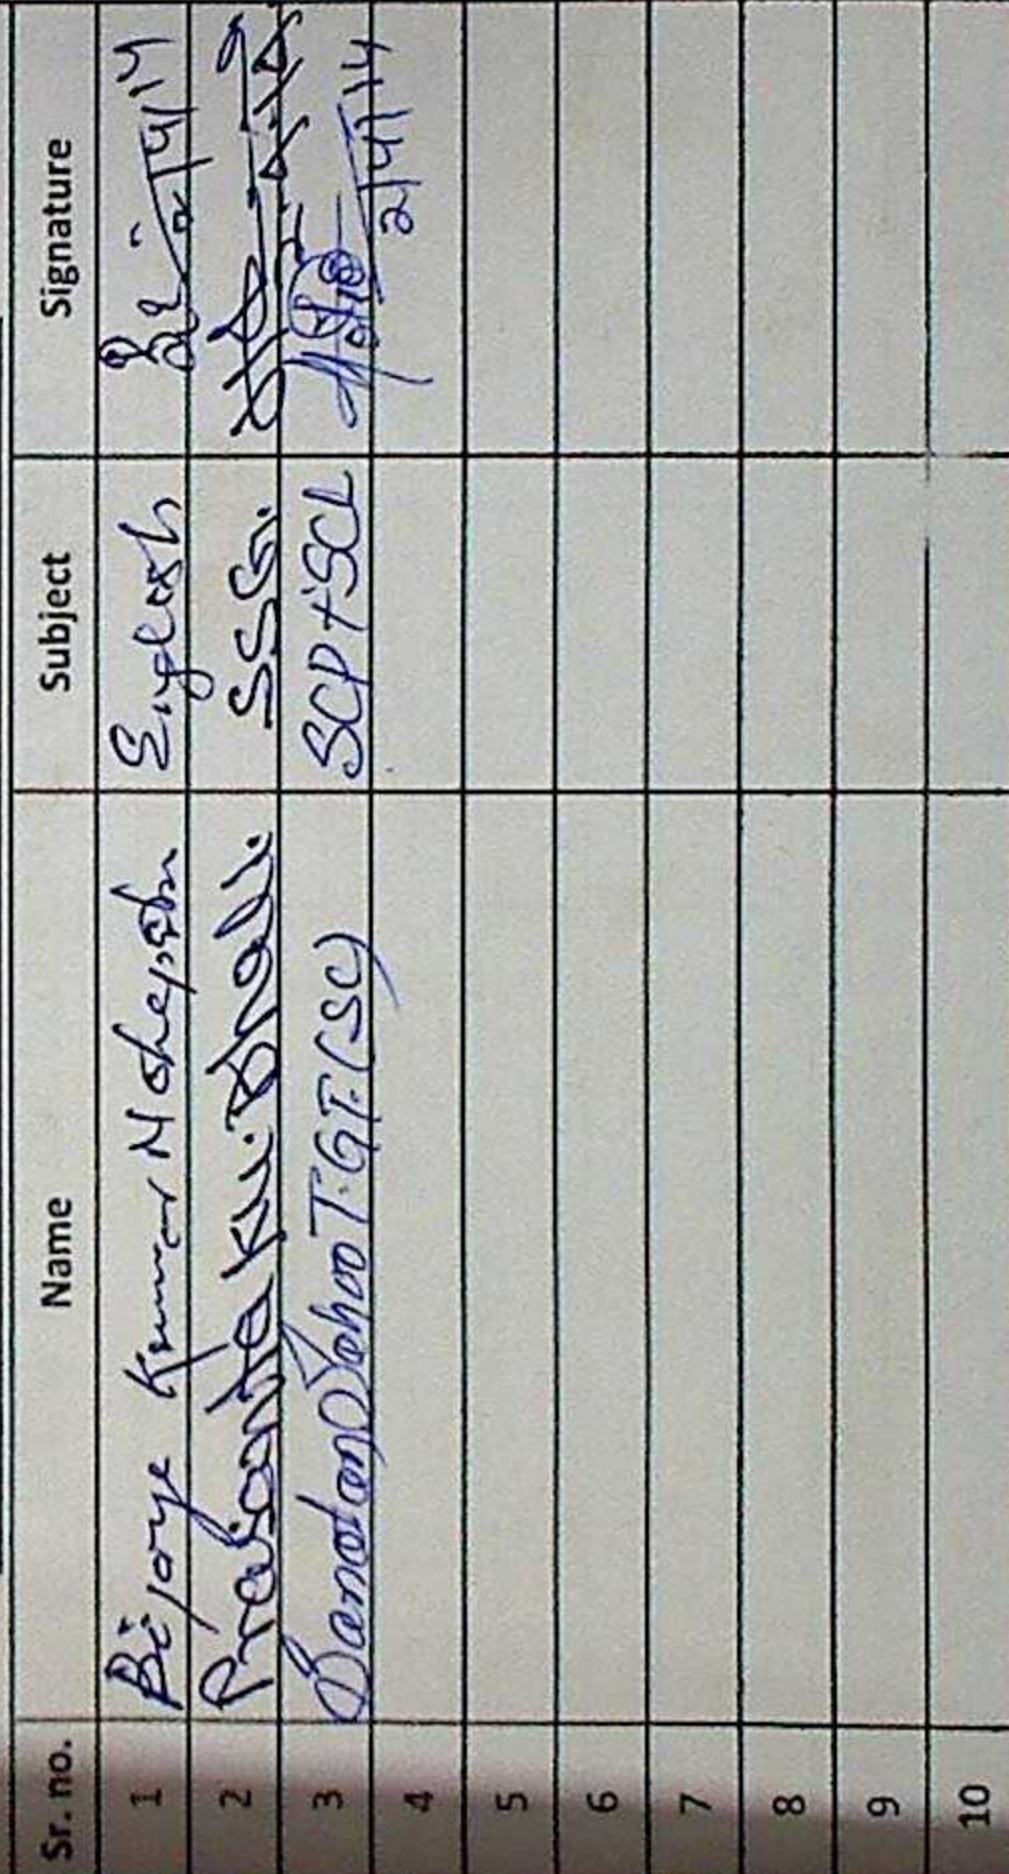 Sr. no. Name Subject Signature
1 Bijoye Kumar Mohapatra English 2/4/14
2 Prasanta Ku. Bhali. SSc.
3 Sanatan Sahoo T.G.T.(SC) SCP+SCL 2/4/14
4
5
6
7
8
9
10